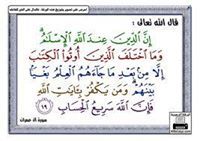 قال الله تعالى :
إِنَّ الدِّينَ عِندَ اللَّهِ الْإِسْلَامُ
وَمَا اخْتَلَفَ الَّذِينَ أُوتُوا الْكِتَابَ
إِلَّا مِن بَعْدِ مَا جَاءَهُمُ الْعِلْمُ بَغْيًا
بَيْنَهُمْ وَمَن يَكْفُرْ بِآيَاتِ اللَّهِ
فَإِنَّ اللَّهَ سَرِيعُ الْحِسَابِ ١٩
سورة آل عمران